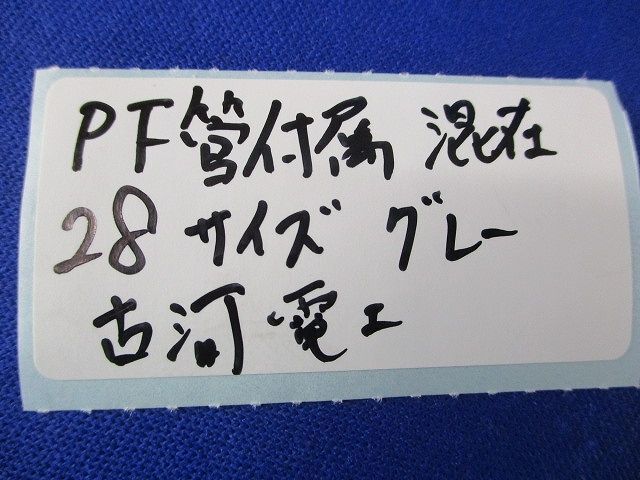 PF管付属 混在
28 サイズ グレー
古河電工